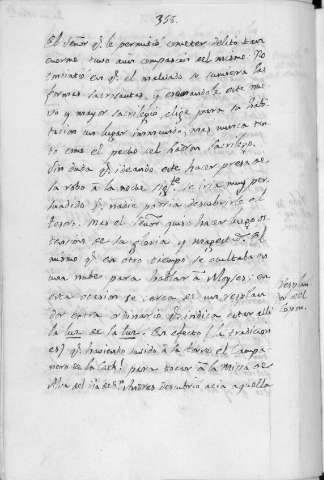 355.
El Señor q.e le permitió cometer delito tan
enorme tuvo aun compasion del mismo. No
consintió en q.e el malvado se sumiera las
formas sacrosantas, y escusandole este nue-
vo y mayor sacrilegio elige para su habi-
tacion un lugar inmundo, mas nunca tan-
to como el pecho del ladron sacrilego.
Sin duda q.e ideando este hacer presa de
lo robo à la noche sig.te se iria muy per-
suadido q.e nadie podria descubrirle el
tesoro. Mas el Señor quiso hacer luego os-
tension de la gloria y magest.d El
mismo q.e en otro tiempo se ocultaba
una nube para hablar à Moyses: en
esta ocasion se cerca de un resplan-
dor extra ordinario q.e indica estar alli
la luz de la luz. En efecto la tradicion
es q.e haviendo subido à la torre el campa-
nero de la Cath.l para tocar à la Missa de
Alva del dia de S.n Andres descubrió acia aquella
Resplan-
dor del